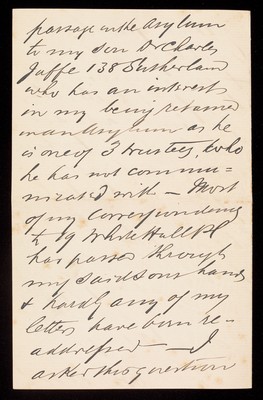 passage in the Asylum
to my son Dr Charles
Jaffe 138 Sutherland
who has an interest
in my being retained
in an Asylum as he
is one of 3 trustees, who
he has not commu-
nicated with – Most
of my correspondence
to 9 White Hall Pl
has passed through
my said sons hands
& hardly any of my
letters have been re-
addressed – I
asked this question